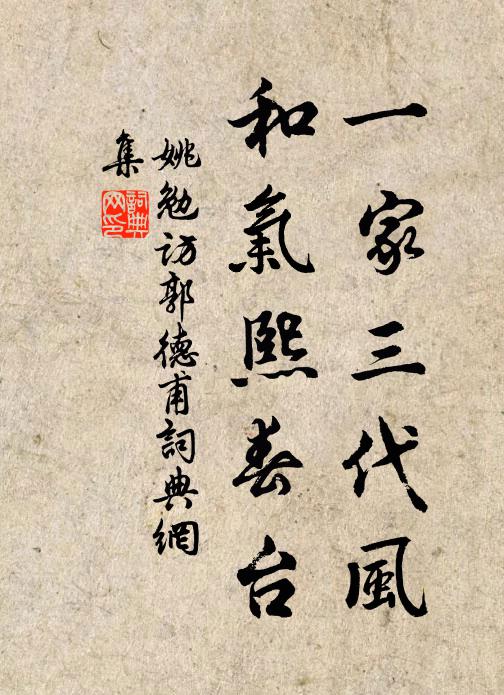 一家三代風
和氣熙春台
姚勉访郭德甫詞典網
集
詞典
网印